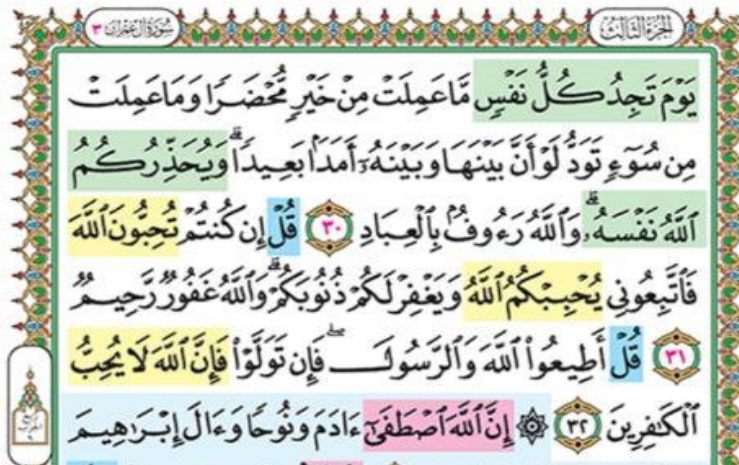 الجزء الثالث
سورة آل عمران ٣
يَوْمَ تَجِدُ كُلُّ نَفْسٍ مَّا عَمِلَتْ مِنْ خَيْرٍ مُّحْضَرًا وَمَا عَمِلَتْ
مِن سُوٓءٍ تَوَدُّ لَوْ أَنَّ بَيْنَهَا وَبَيْنَهُۥٓ أَمَدًۢا بَعِيدًا ۗ وَيُحَذِّرُكُمُ
ٱللَّهُ نَفْسَهُۥ ۗ وَٱللَّهُ رَءُوفُۢ بِٱلْعِبَادِ ٣٠ قُلْ إِن كُنتُمْ تُحِبُّونَ ٱللَّهَ
فَٱتَّبِعُونِى يُحْبِبْكُمُ ٱللَّهُ وَيَغْفِرْ لَكُمْ ذُنُوبَكُمْ ۗ وَٱللَّهُ غَفُورٌ رَّحِيمٌ
٣١ قُلْ أَطِيعُوا۟ ٱللَّهَ وَٱلرَّسُولَ ۖ فَإِن تَوَلَّوْا۟ فَإِنَّ ٱللَّهَ لَا يُحِبُّ
ٱلْكَٰفِرِينَ ٣٢ ۞ إِنَّ ٱللَّهَ ٱصْطَفَىٰٓ ءَادَمَ وَنُوحًا وَءَالَ إِبْرَٰهِيمَ